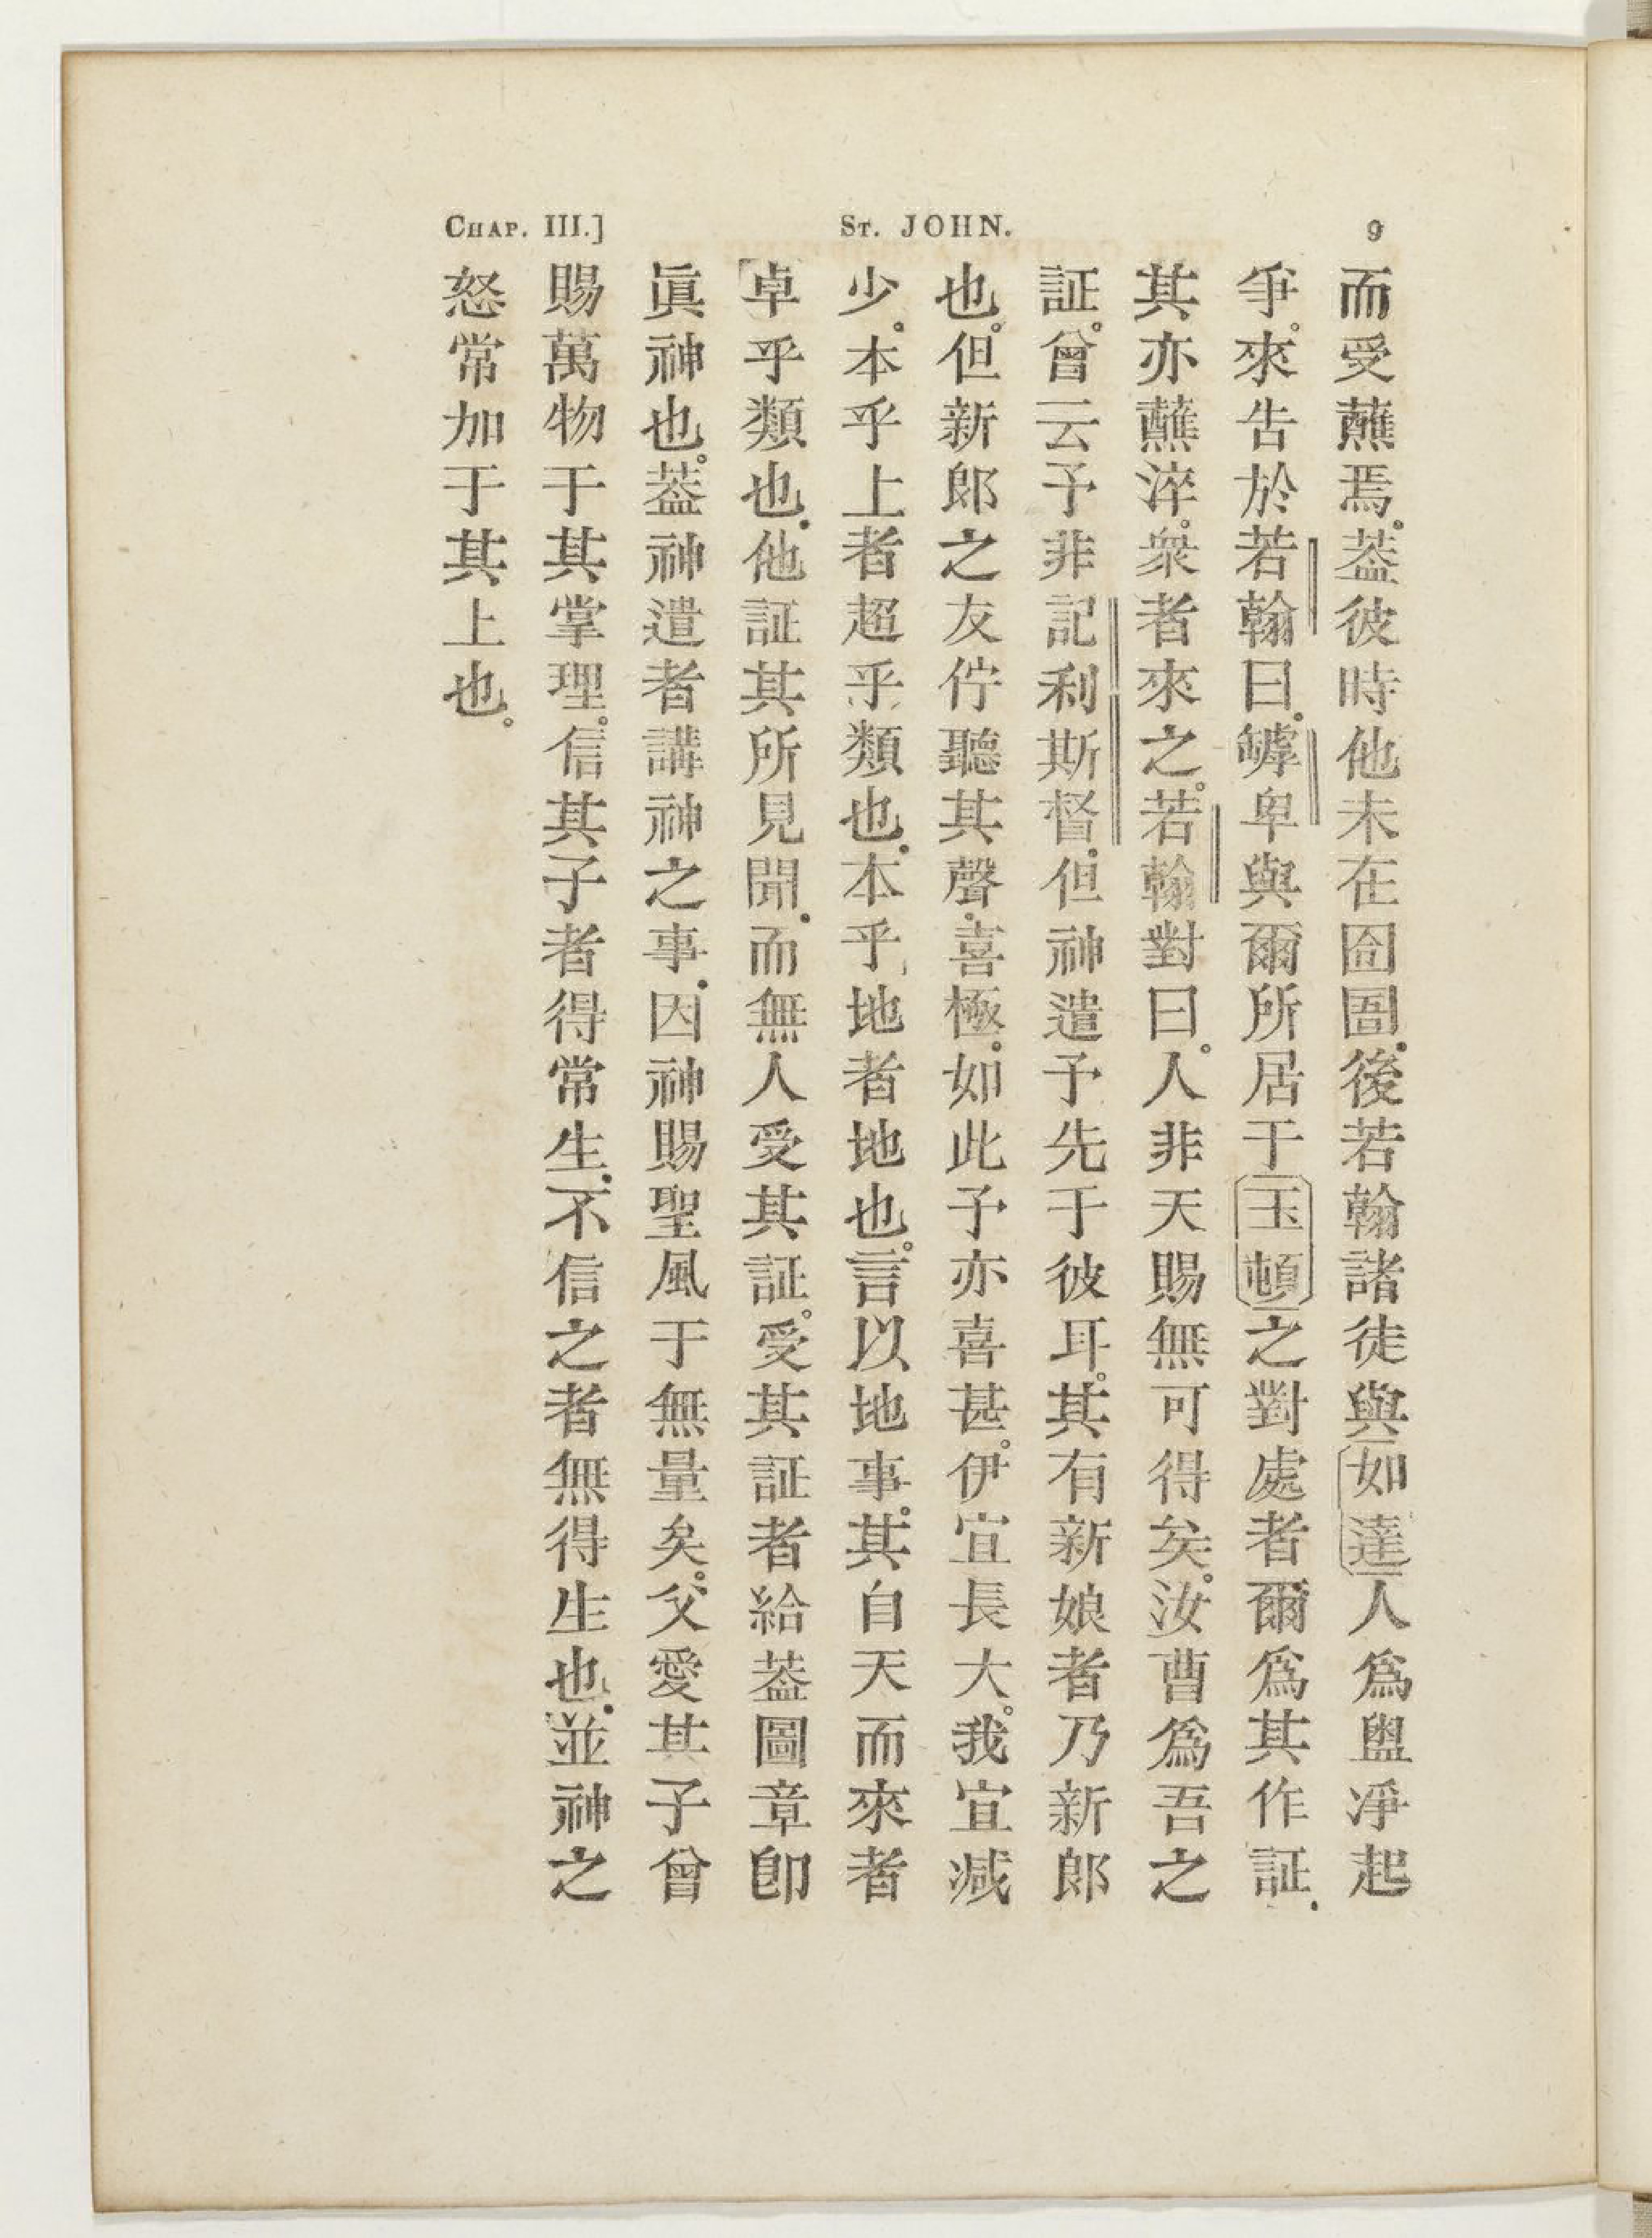 CHAP. III.] ST. JOHN. 9
而受蘸焉。葢彼時他未在囹圄。後若翰諸徒與如達人爲盥凈起
爭。來告於若翰曰。嘑卑與爾所居于玉頓之對處者爾爲其作証.
其亦蘸淬。衆者來之。若翰對曰。人非天賜無可得矣。汝曹爲吾之
証。曾云予非記利斯督。但神遣予先于彼耳。其有新娘者乃新郎
也。但新郎之友佇聽其聲。喜極。如此予亦喜甚。伊宜長大。我宜減
少。本乎上者超乎類也.本乎地者地也。言以地事。其自天而來者
卓乎類也.他証其所見聞.而無人受其証。受其証者給葢圖章卽
眞神也。葢神遣者講神之事.因神賜聖風于無量矣。父愛其子曾
賜萬物于其掌理。信其子者得常生.不信之者無得生也.並神之
怒常加于其上也。